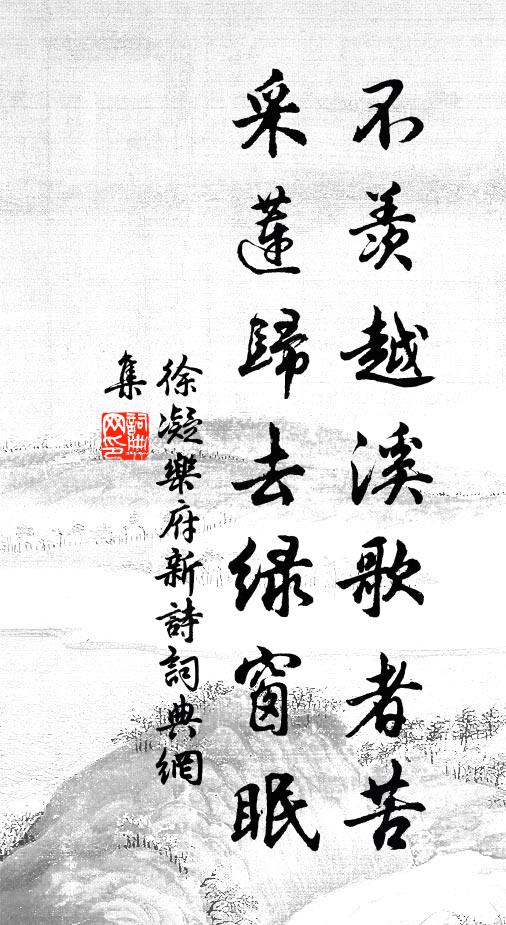 不羨越溪歌者苦
采蓮歸去綠窗眠
徐凝樂府新詩詞典網
集
詞典網印